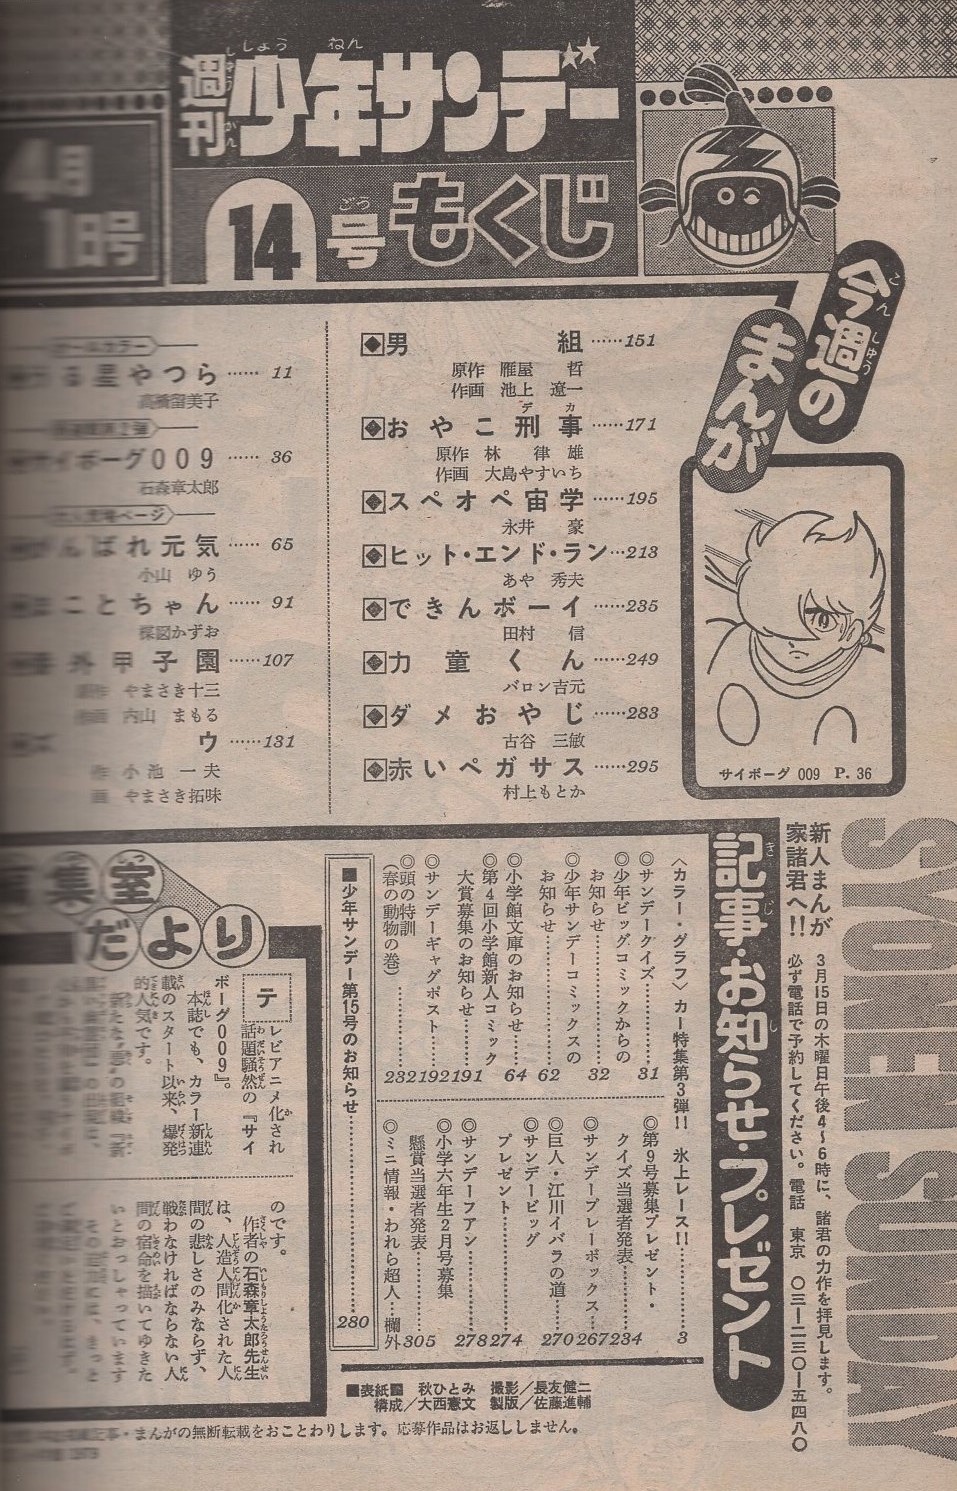 週刊少年サンデー
しょうねん
14号もくじ
ごう
4月
1日号
今週の
こんしゅう
まんが
男組……151
原作 雁屋 哲
作画 池上 遼一
デカ
おやこ刑事……171
原作 林 律雄
作画 大島やすいち
スペオペ宙学……195
永井 豪
ヒット・エンド・ラン…213
あや 秀夫
できんボーイ……235
田村 信
力童くん……249
バロン吉元
ダメおやじ……283
古谷 三敏
赤いペガサス……295
村上もとか
る星やつら……11
高橋留美子
サイボーグ009……36
石森章太郎
んばれ元気……65
小山 ゆう
ことちゃん……91
楳図かずお
外甲子園……107
やまさき十三
内山 まもる
ウ……131
作 小池 一夫
画 やまさき拓味
サイボーグ 009 P. 36
SYONEN SUNDAY
新人まんが
家諸君へ!!
3月15日の木曜日午後4〜6時に、諸君の力作を拝見します。
必ず電話で予約してください。電話 東京 〇三―二三〇―五四八〇
記事・お知らせ・プレゼント
きじ
し
〈カラー・グラフ〉カー特集第3弾!! 氷上レース!!……3
◎サンデークイズ……31
◎少年ビッグコミックからの
お知らせ……32
◎少年サンデーコミックスの
お知らせ……62
◎小学館文庫のお知らせ……64
◎第4回小学館新人コミック
大賞募集のお知らせ……191
◎サンデーギャグポスト……192
◎頭の特訓
(春の動物の巻)……232
◎第9号募集プレゼント・
クイズ当選者発表……234
◎サンデープレーボックス……267
◎巨人・江川イバラの道……270
◎サンデービッグ
プレゼント……274
◎サンデーフアン……278
◎小学六年生2月号募集
懸賞当選者発表……305
◎ミニ情報・われら超人…欄外
■少年サンデー第15号のお知らせ……280
■表紙 秋ひとみ 撮影/長友健二
構成/大西憲文 製版/佐藤進輔
集室
だより
テレビアニメ化され
話題騒然の『サイ
ボーグ009』。
本誌でも、カラー新連
載のスタート以来、爆発
的人気です。
のです。
作者の石森章太郎先生
は、人造人間化された人
間の悲しさのみならず、
戦わなければならない人
間の宿命を描いてゆきた
いとおっしゃっています
記事・まんがの無断転載をおことわりします。応募作品はお返ししません。